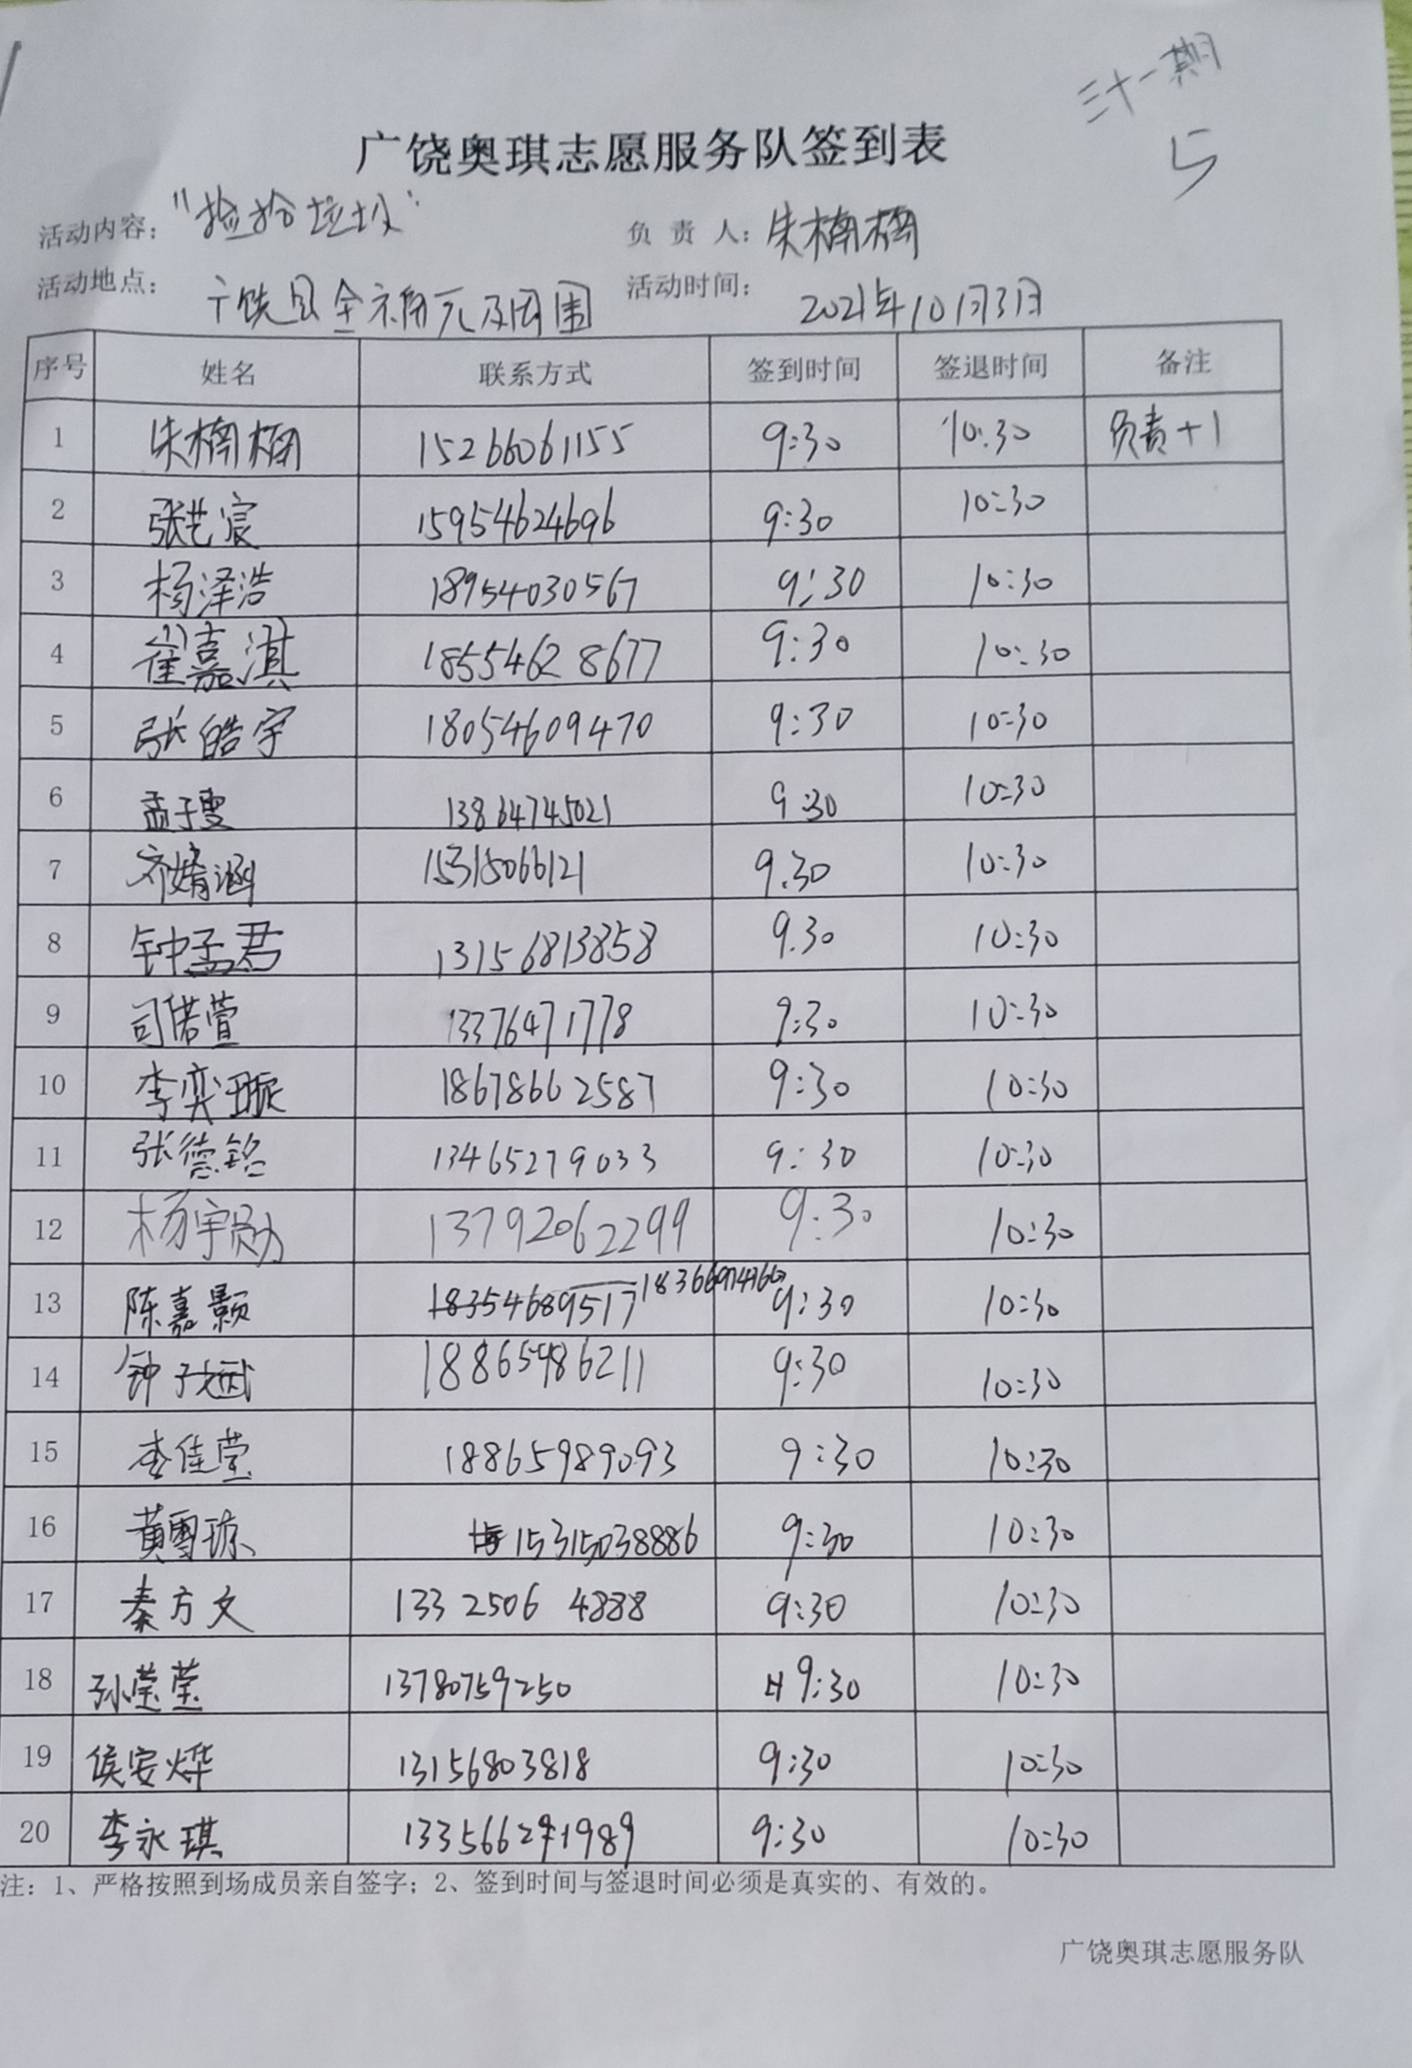 三十一期
5
广饶奥琪志愿服务队签到表
活动内容： "捡拾垃圾" 负 责 人： 朱楠楠
活动地点： 广饶县全福元及周围 活动时间： 2021年10月3日
序号 姓名 联系方式 签到时间 签退时间 备注
1 朱楠楠 15266061155 9:30 10:30 负责+1
2 张艺宸 15954624696 9:30 10:30
3 杨泽浩 18954030567 9:30 10:30
4 崔嘉淇 18554628677 9:30 10:30
5 张皓宇 18054609470 9:30 10:30
6 孟子雯 13864745021 9:30 10:30
7 齐婧涵 15315066121 9.30 10:30
8 钟孟君 13156813858 9.30 10:30
9 司偌萱 13376471778 9:30 10:30
10 李奕璇 18678662587 9:30 10:30
11 张德铭 13465279033 9:30 10:30
12 杨宇勋 13792062299 9:30 10:30
13 陈嘉颢 18354689517 18366974766 9:30 10:30
14 钟子斌 18865986211 9:30 10:30
15 李佳莹 18865989093 9:30 10:30
16 黄雪琼 15315038886 9:30 10:30
17 秦方文 133 2506 4888 9:30 10:30
18 孙莹莹 13780759250 9:30 10:30
19 侯安烨 13156803818 9:30 10:30
20 李永琪 13356621989 9:30 10:30
注：1、严格按照到场成员亲自签字；2、签到时间与签退时间必须是真实的、有效的。
广饶奥琪志愿服务队